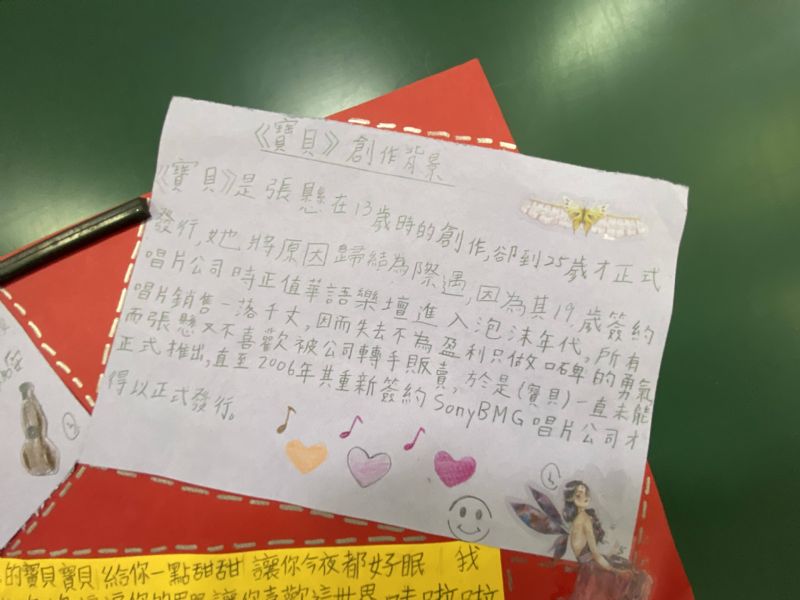 《寶貝》創作背景
《寶貝》是張懸在13歲時的創作,卻到25歲才正式
發行,她將原因歸結為際遇,因為其19歲簽約
唱片公司時正值華語樂壇進入泡沫年代,所有
唱片銷售一落千丈,因而失去不為盈利只做口碑的勇氣
而張懸又不喜歡被公司轉手販賣,於是(寶貝)一直未能
正式推出,直至2006年其重新簽約SonyBMG唱片公司才
得以正式發行。
的寶貝寶貝 給你一點甜甜 讓你今夜都好眠 我
讓你喜歡這世界 哇啦啦